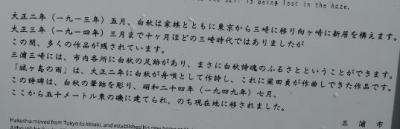 is being lost in the haze.
大正二年（一九一三年）五月、白秋は家族とともに東京から三崎に移り向ヶ崎に新居を構えます。
大正三年（一九一四年）三月まで十ヶ月ほどの三崎時代ではありましたが
この間、多くの作品が残されています。
三浦三崎には、市内各所に白秋の足跡があり、まさに白秋詩魂のふるさとということができます。
「城ヶ島の雨」は、大正二年に白秋が舟唄として作詩し、これに梁田貞が作曲してできた作品です。
この詩碑は、白秋の筆跡を彫り、昭和二十四年（一九四九年）七月、
ここから五十メートル東の磯に建てられ、のち現在地に移されました。
三浦市
Hakushu moved from Tokyo to Misaki, and established his new home